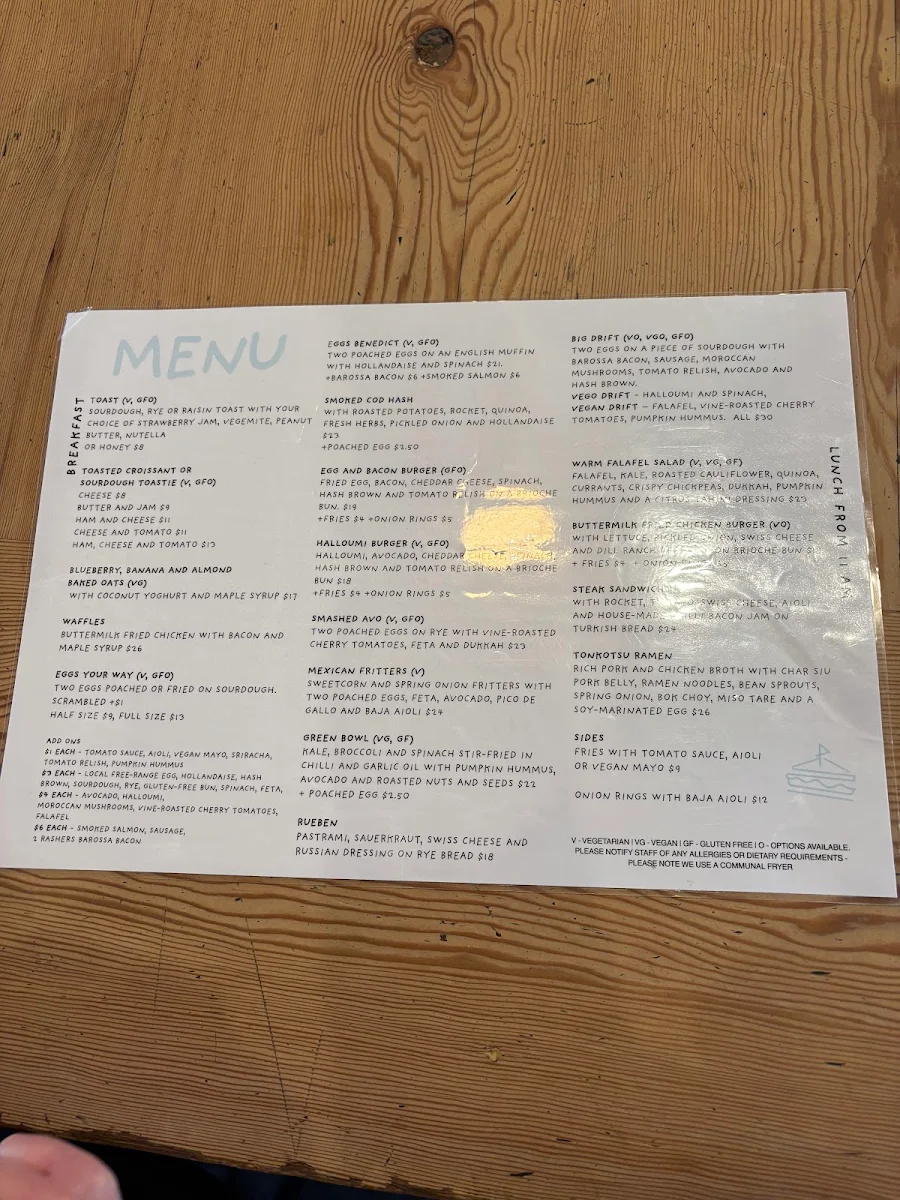 MENU
BREAKFAST
TOAST (V, GFO)
SOURDOUGH, RYE OR RAISIN TOAST WITH YOUR
CHOICE OF STRAWBERRY JAM, VEGEMITE, PEANUT
BUTTER, NUTELLA
OR HONEY $8
TOASTED CROISSANT OR
SOURDOUGH TOASTIE (V, GFO)
CHEESE $8
BUTTER AND JAM $9
HAM AND CHEESE $11
CHEESE AND TOMATO $11
HAM, CHEESE AND TOMATO $13
BLUEBERRY, BANANA AND ALMOND
BAKED OATS (VG)
WITH COCONUT YOGHURT AND MAPLE SYRUP $17
WAFFLES
BUTTERMILK FRIED CHICKEN WITH BACON AND
MAPLE SYRUP $26
EGGS YOUR WAY (V, GFO)
TWO EGGS POACHED OR FRIED ON SOURDOUGH.
SCRAMBLED +$1
HALF SIZE $9, FULL SIZE $13
ADD ONS
$1 EACH - TOMATO SAUCE, AIOLI, VEGAN MAYO, SRIRACHA,
TOMATO RELISH, PUMPKIN HUMMUS
$3 EACH - LOCAL FREE-RANGE EGG, HOLLANDAISE, HASH
BROWN, SOURDOUGH, RYE, GLUTEN-FREE BUN, SPINACH, FETA,
$4 EACH - AVOCADO, HALLOUMI,
MOROCCAN MUSHROOMS, VINE-ROASTED CHERRY TOMATOES,
FALAFEL
$6 EACH - SMOKED SALMON, SAUSAGE,
2 RASHERS BAROSSA BACON
EGGS BENEDICT (V, GFO)
TWO POACHED EGGS ON AN ENGLISH MUFFIN
WITH HOLLANDAISE AND SPINACH $21.
+BAROSSA BACON $6 +SMOKED SALMON $6
SMOKED COD HASH
WITH ROASTED POTATOES, ROCKET, QUINOA,
FRESH HERBS, PICKLED ONION AND HOLLANDAISE
$23
+POACHED EGG $2.50
EGG AND BACON BURGER (GFO)
FRIED EGG, BACON, CHEDDAR CHEESE, SPINACH,
HASH BROWN AND TOMATO RELISH ON A BRIOCHE
BUN. $19
+FRIES $4 +ONION RINGS $5
HALLOUMI BURGER (V, GFO)
HALLOUMI, AVOCADO, CHEDDAR CHEESE, SPINACH,
HASH BROWN AND TOMATO RELISH ON A BRIOCHE
BUN $18
+FRIES $4 +ONION RINGS $5
SMASHED AVO (V, GFO)
TWO POACHED EGGS ON RYE WITH VINE-ROASTED
CHERRY TOMATOES, FETA AND DUKKAH $23
MEXICAN FRITTERS (V)
SWEETCORN AND SPRING ONION FRITTERS WITH
TWO POACHED EGGS, FETA, AVOCADO, PICO DE
GALLO AND BAJA AIOLI $24
GREEN BOWL (VG, GF)
KALE, BROCCOLI AND SPINACH STIR-FRIED IN
CHILLI AND GARLIC OIL WITH PUMPKIN HUMMUS,
AVOCADO AND ROASTED NUTS AND SEEDS $22
+ POACHED EGG $2.50
RUEBEN
PASTRAMI, SAUERKRAUT, SWISS CHEESE AND
RUSSIAN DRESSING ON RYE BREAD $18
BIG DRIFT (VO, VGO, GFO)
TWO EGGS ON A PIECE OF SOURDOUGH WITH
BAROSSA BACON, SAUSAGE, MOROCCAN
MUSHROOMS, TOMATO RELISH, AVOCADO AND
HASH BROWN.
VEGO DRIFT - HALLOUMI AND SPINACH,
VEGAN DRIFT - FALAFEL, VINE-ROASTED CHERRY
TOMATOES, PUMPKIN HUMMUS. ALL $30
LUNCH FROM 11 AM
WARM FALAFEL SALAD (V, VG, GF)
FALAFEL, KALE, ROASTED CAULIFLOWER, QUINOA,
CURRANTS, CRISPY CHICKPEAS, DUKKAH, PUMPKIN
HUMMUS AND A CITRUS TAHINI DRESSING $23
BUTTERMILK FRIED CHICKEN BURGER (VO)
WITH LETTUCE, PICKLED ONION, SWISS CHEESE
AND DILL RANCH ON BRIOCHE BUN
+ FRIES $4 + ONION
STEAK SANDWICH
WITH ROCKET, SWISS CHEESE, AIOLI
AND BACON JAM ON
TURKISH BREAD $24
TONKOTSU RAMEN
RICH PORK AND CHICKEN BROTH WITH CHAR SIU
PORK BELLY, RAMEN NOODLES, BEAN SPROUTS,
SPRING ONION, BOK CHOY, MISO TARE AND A
SOY-MARINATED EGG $26
SIDES
FRIES WITH TOMATO SAUCE, AIOLI
OR VEGAN MAYO $9
ONION RINGS WITH BAJA AIOLI $12
V - VEGETARIAN | VG - VEGAN | GF - GLUTEN FREE | O - OPTIONS AVAILABLE.
PLEASE NOTIFY STAFF OF ANY ALLERGIES OR DIETARY REQUIREMENTS -
PLEASE NOTE WE USE A COMMUNAL FRYER